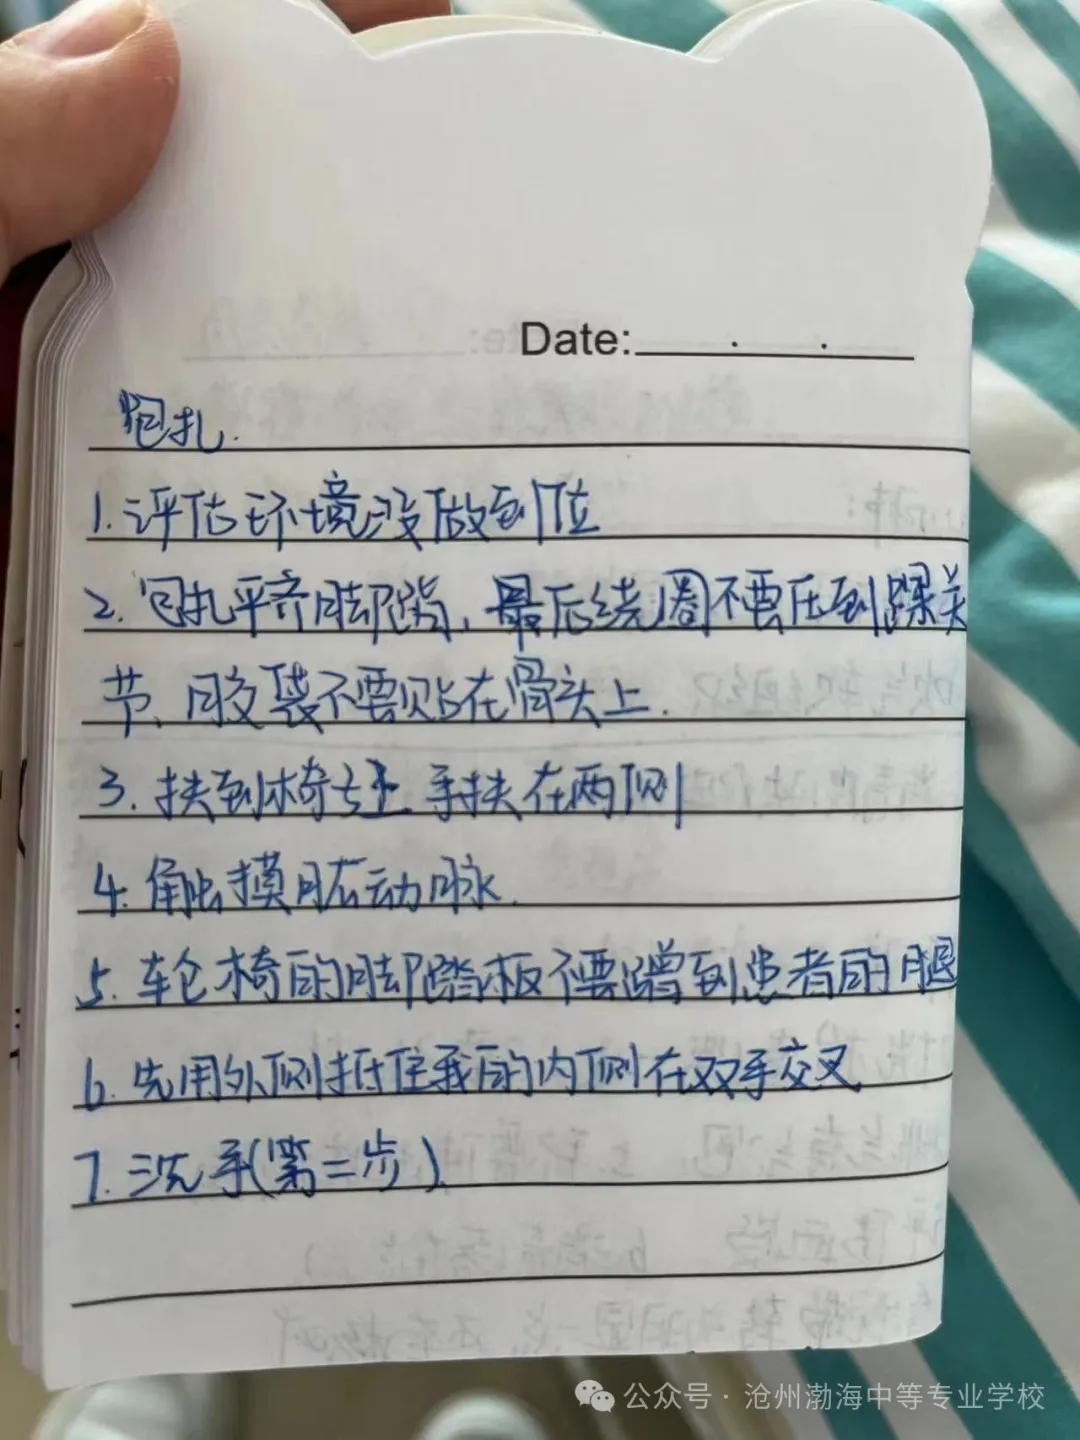 Date:
包扎.
1.评估环境没做到位
2.包扎平齐脚踏,最后绕圈不要压到踝关
节、胶袋不要贴在骨头上.
3.扶到椅子上手扶在两侧
4.触摸动脉.
5.轮椅的脚踏板不要蹭到患者的腿
6.先用外侧抵住我的内侧在双手交叉
7.洗手(第二步)
公众号·沧州渤海中等专业学校